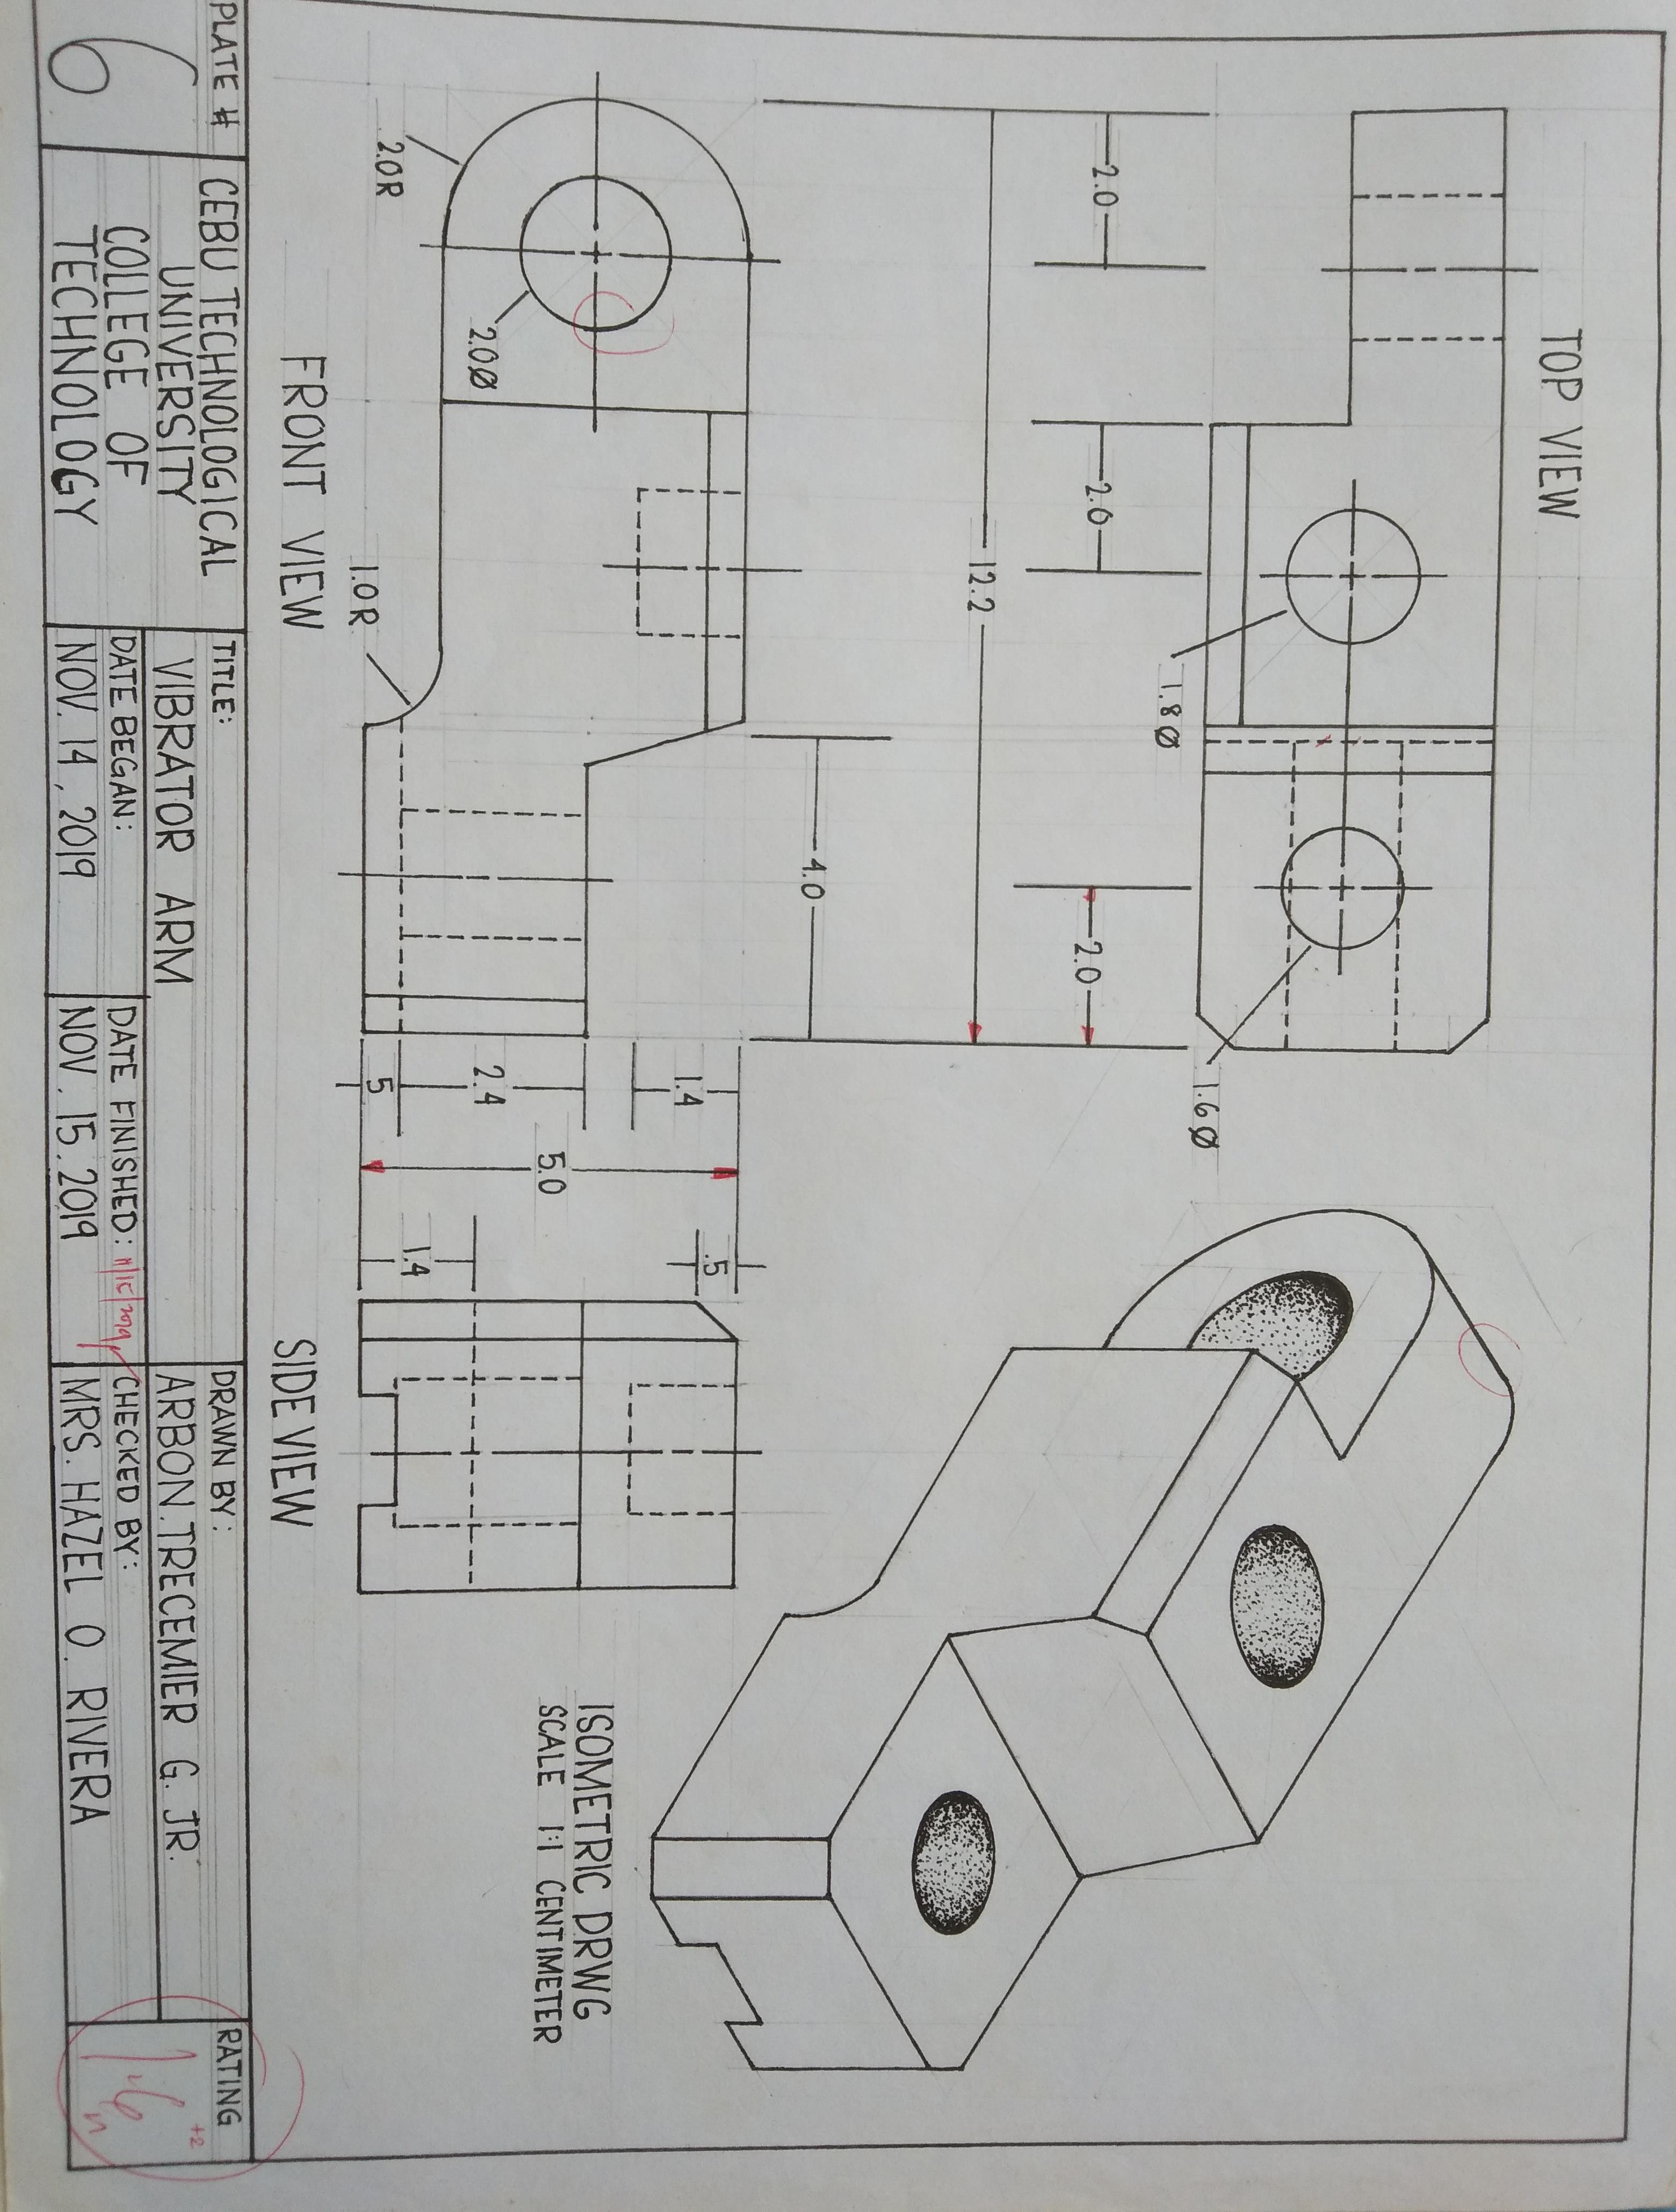 TOP VIEW
2.0
2.0
1.8Ø
12.2
2.0
1.6Ø
4.0
2.0R
2.0Ø
1.0R
FRONT VIEW
1.4
2.4
5
5.0
.5
1.4
SIDE VIEW
ISOMETRIC DRWG
SCALE 1:1 CENTIMETER
PLATE #
6
CEBU TECHNOLOGICAL
UNIVERSITY
COLLEGE OF
TECHNOLOGY
TITLE:
VIBRATOR ARM
DATE BEGAN:
NOV. 14, 2019
DATE FINISHED:
NOV. 15. 2019
DRAWN BY:
ARBON.TRECEMIER G. JR.
CHECKED BY:
MRS. HAZEL O. RIVERA
RATING
1.6
+2